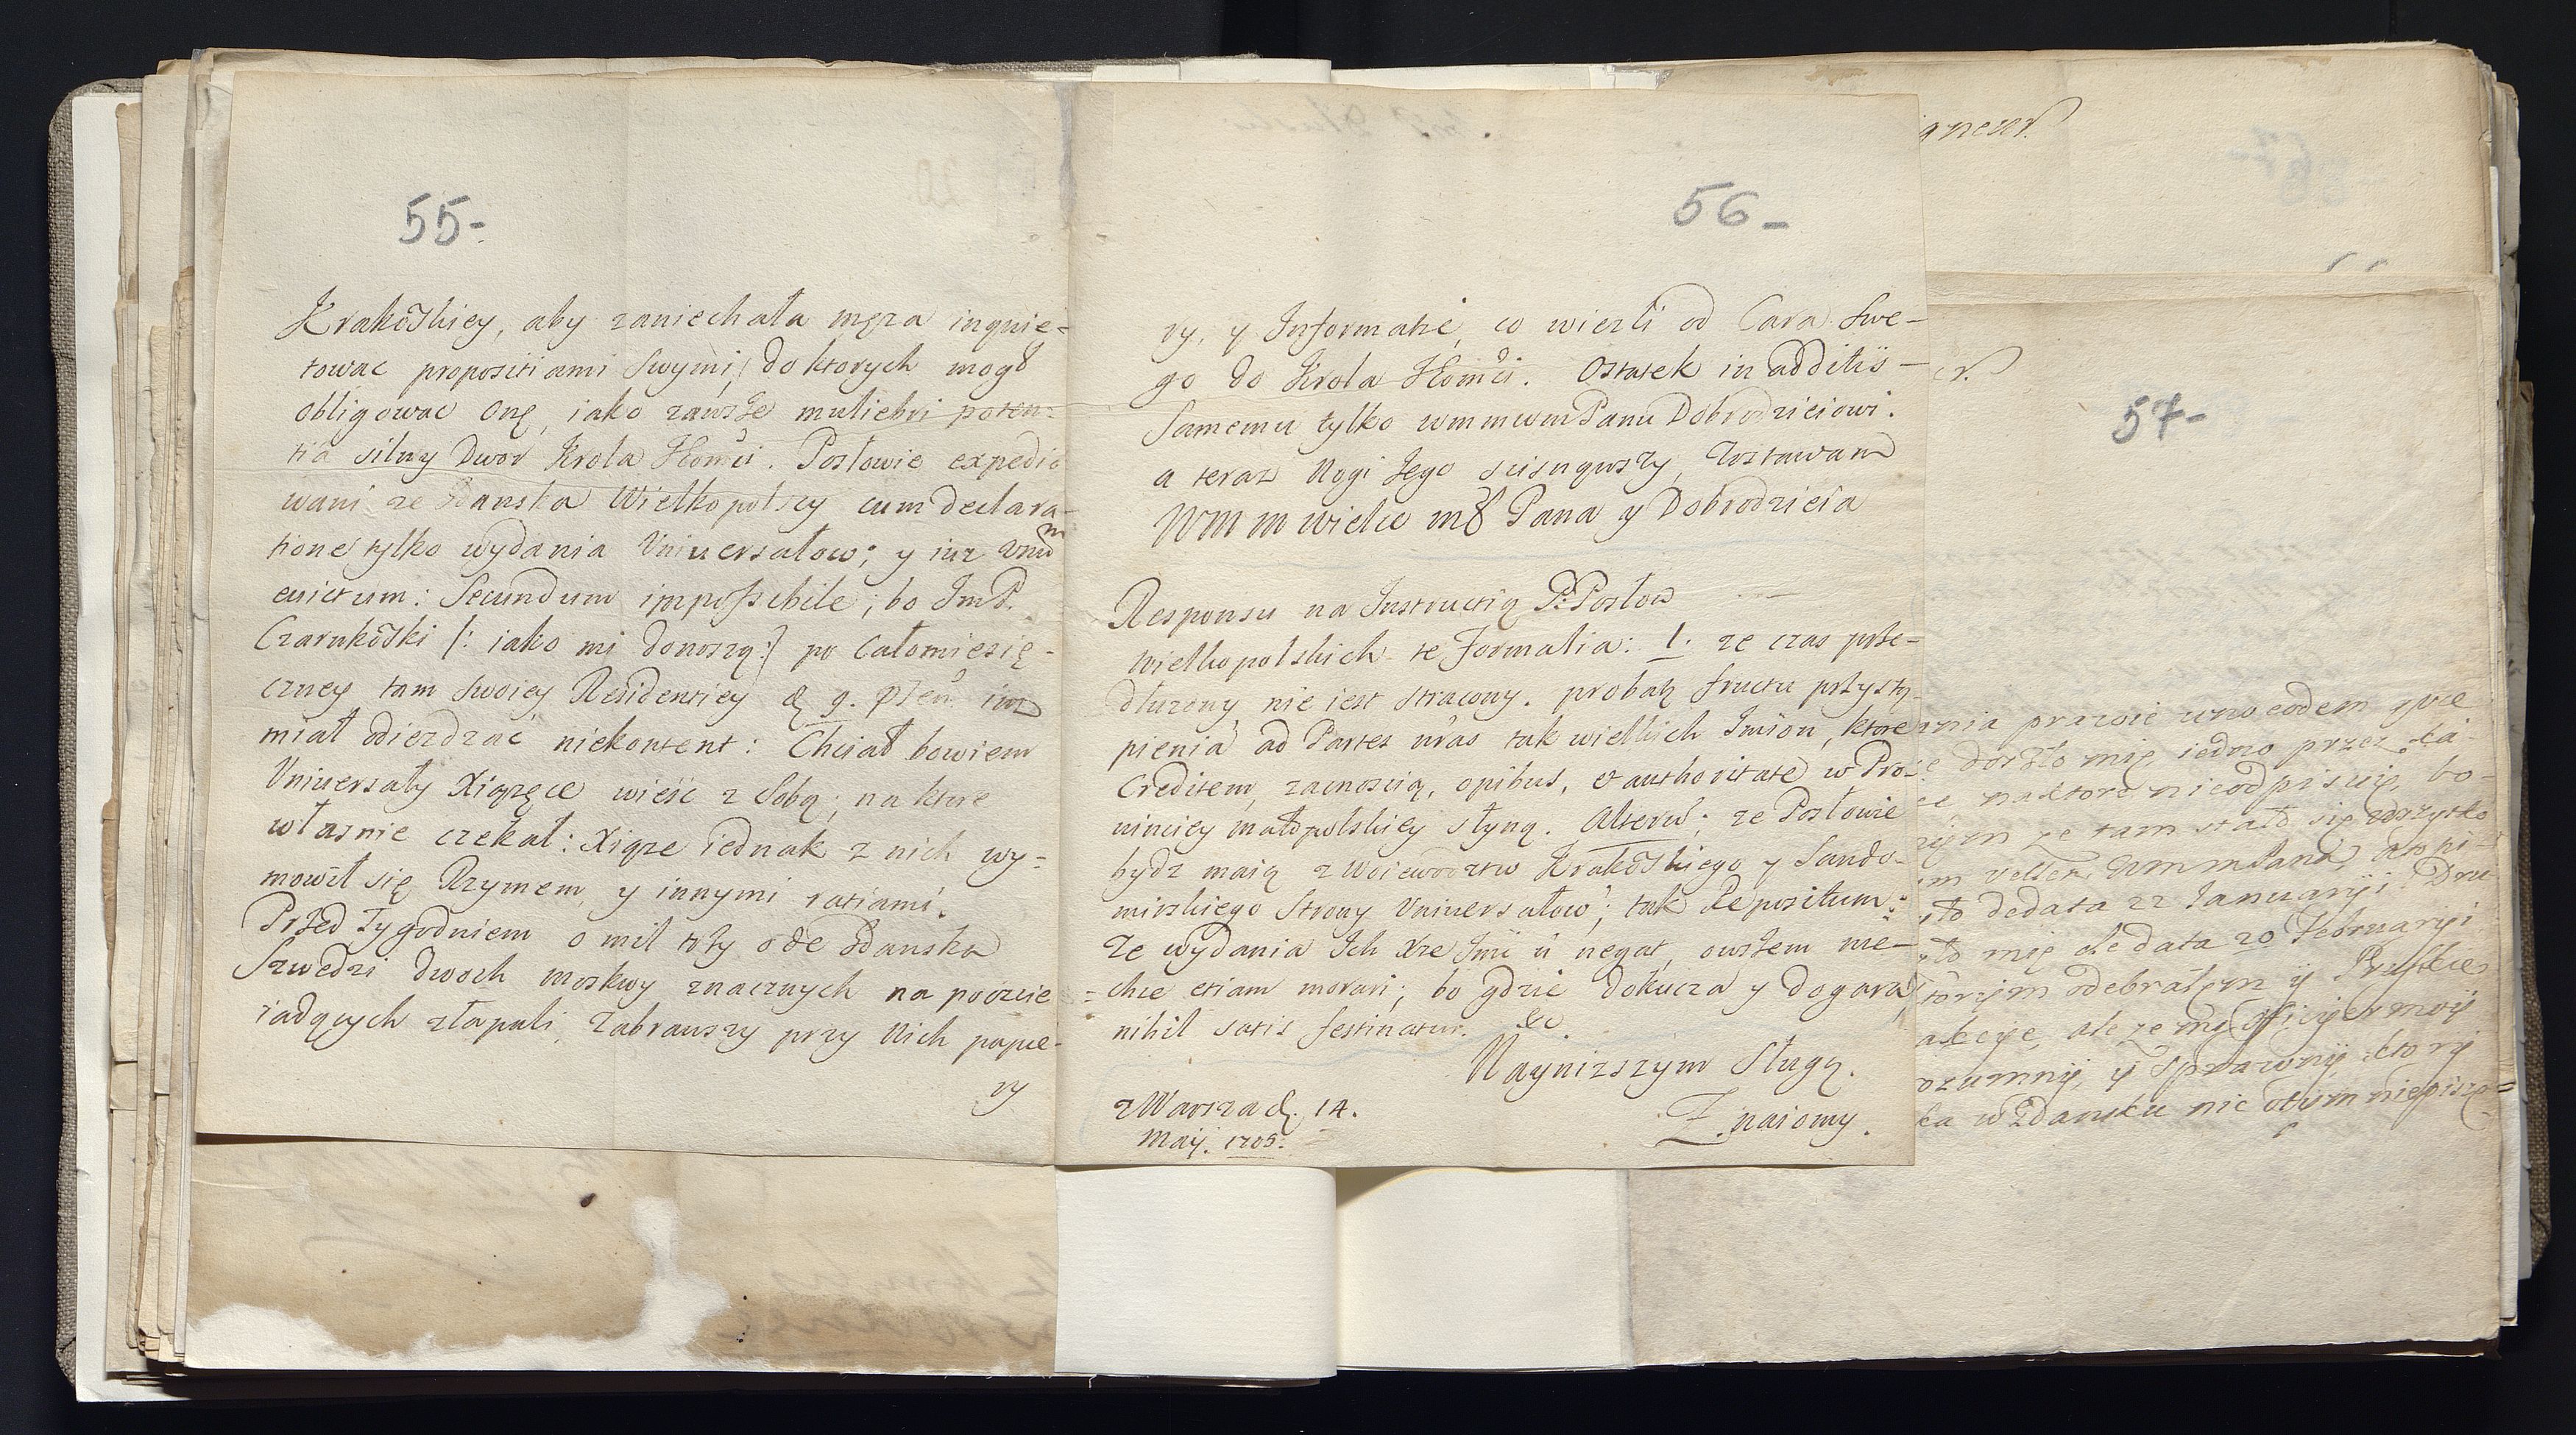 55-
Krakōskiey, aby zaniechała męża inquie-
towac propositiami Swymi, do ktorych mogł
obligowac onę, iako zawsże muliebri poten-
tia silny Dwor Krola Jeomci. Posłowie expedio
wani ze Gdanska Wielkopolscy cum declara-
tione tylko wydania Uniuersałow; y iuz unum
euictum: Secundum impossibile; bo JmP.
Czarnkōski /: iako mi donoszą:/ po całomiesię-
czney tam swoiey Residentiey d. 9. iuz
miał odiezdzać niekontent: Chciał bowiem
Uniuersały Xiążęce wieść z Sobą; na ktore
własnie czekał: Xiąże iednak z nich wy-
mowił się Rzymem, y innymi ratiami.
Przed Tygodniem o mil trzy ode Gdanska
Szwedzi dwoch moskwy znacznych na poczcie
iadących złapali, zabrawszy przy Nich papie-
ry
56-
ry, y Informatić, co wiezli od Cara Swe-
go do Krola Jeomci. Ostatek in additis
Samemu tylko wmmwm Panu Dobrodzieiowi.
a teraz Nogi Jego scisnąwszy, Zostawam
WM m wielce mł Pana y Dobrodzieia
Responsu na Instructią P: Posłow
wielkopolskich te Formalia: 1. ze czas prze-
dłuzony nie iest stracony. probat fructu przystą-
pienia ad Partes nr̄as tak wielkich Imion, ktore
Creditem, zacnoscią, opibus, et authoritate w Pro-
uinciey małopolskiey słyną. Alterū; ze Posłowie
bydz maią z Woiewodztw Krakōskiego y Sando-
mirskiego Strony Uniuersałow; tak Repositum:
Ze wydania Ich Xże Jmć n̄ negat, owszem nie-
chce etiam morari; bo gdzie dokucza y dogara,
nihil satis festinatur. &c.
Naynizszym Sługą.
Znaiomy.
z Warsza d. 14.
Maij. 1705.
57-
prawie uno eodem
doszło mię iedno przez
naktore nieodpisuię, bo-
ze tam stało się wszytko
dedata 22 Januarÿi. Dru
mię de data 20 Februarÿi
odebrałem ÿ
ale ze moÿ
ÿ Sprawnÿ ktorÿ
w Gdansku nic otÿm niepisze